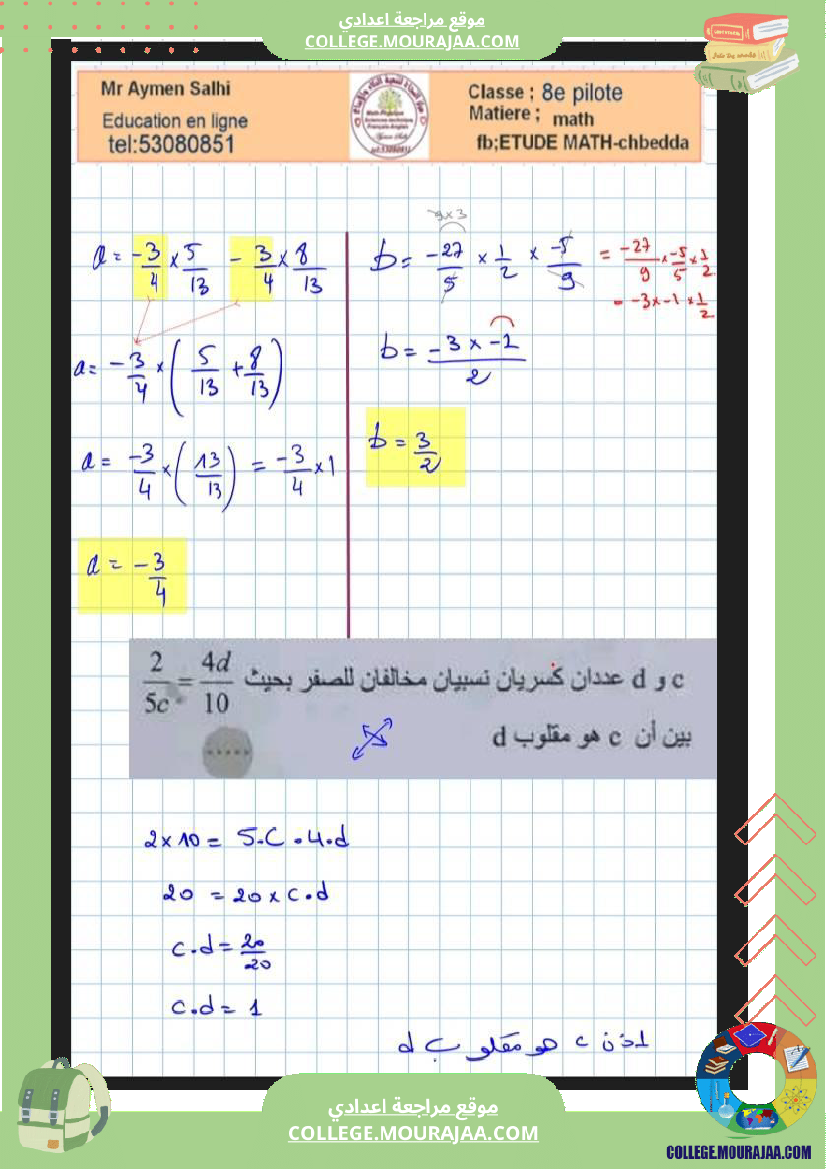 موقع مراجعة اعدادي
COLLEGE.MOURAJAA.COM
Mr Aymen Salhi
Education en ligne
tel:53080851
Classe ; 8e pilote
Matiere ; math
fb;ETUDE MATH-chbedda
a = -3/4 × 5/13 - 3/4 × 8/13
a = -3/4 × (5/13 + 8/13)
a = -3/4 × (13/13) = -3/4 × 1
a = -3/4
9×3
b = -27/5 × 1/2 × -5/9 = -27/9 × -5/5 × 1/2
= -3 × -1 × 1/2
b = -3 × -1 / 2
b = 3/2
c و d عددان كسريان نسبيان مخالفان للصفر بحيث 2/5c = 4d/10
بين أن c هو مقلوب d
2 × 10 = 5.C.4.d
20 = 20 × c.d
c.d = 20/20
c.d = 1
اذن c هو مقلوب d
موقع مراجعة اعدادي
COLLEGE.MOURAJAA.COM
COLLEGE.MOURAJAA.COM